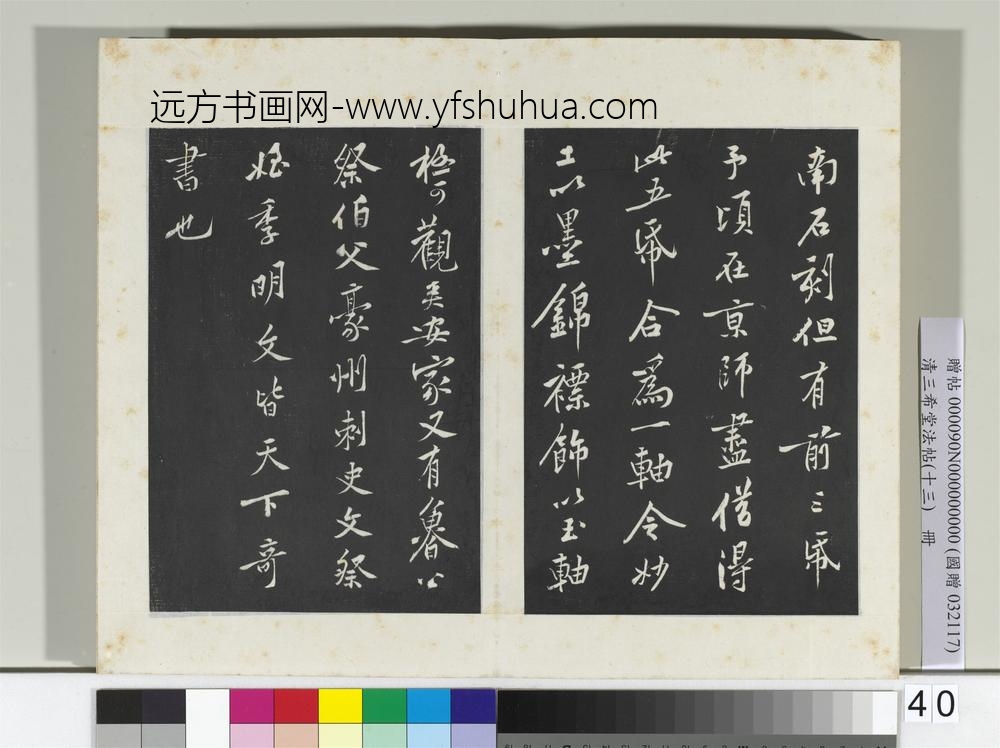 远方书画网-www.yfshuhua.com
南石刻但有前三紙
予頃在京師盡借得
此五紙合為一軸令妙
士以墨錦褾飾以玉軸
極可觀矣安家又有魯公
祭伯父豪州刺史文祭
姪季明文皆天下奇
書也
贈帖 000090N000000000 (國贈 032117)
清三希堂法帖(十三) 冊
40